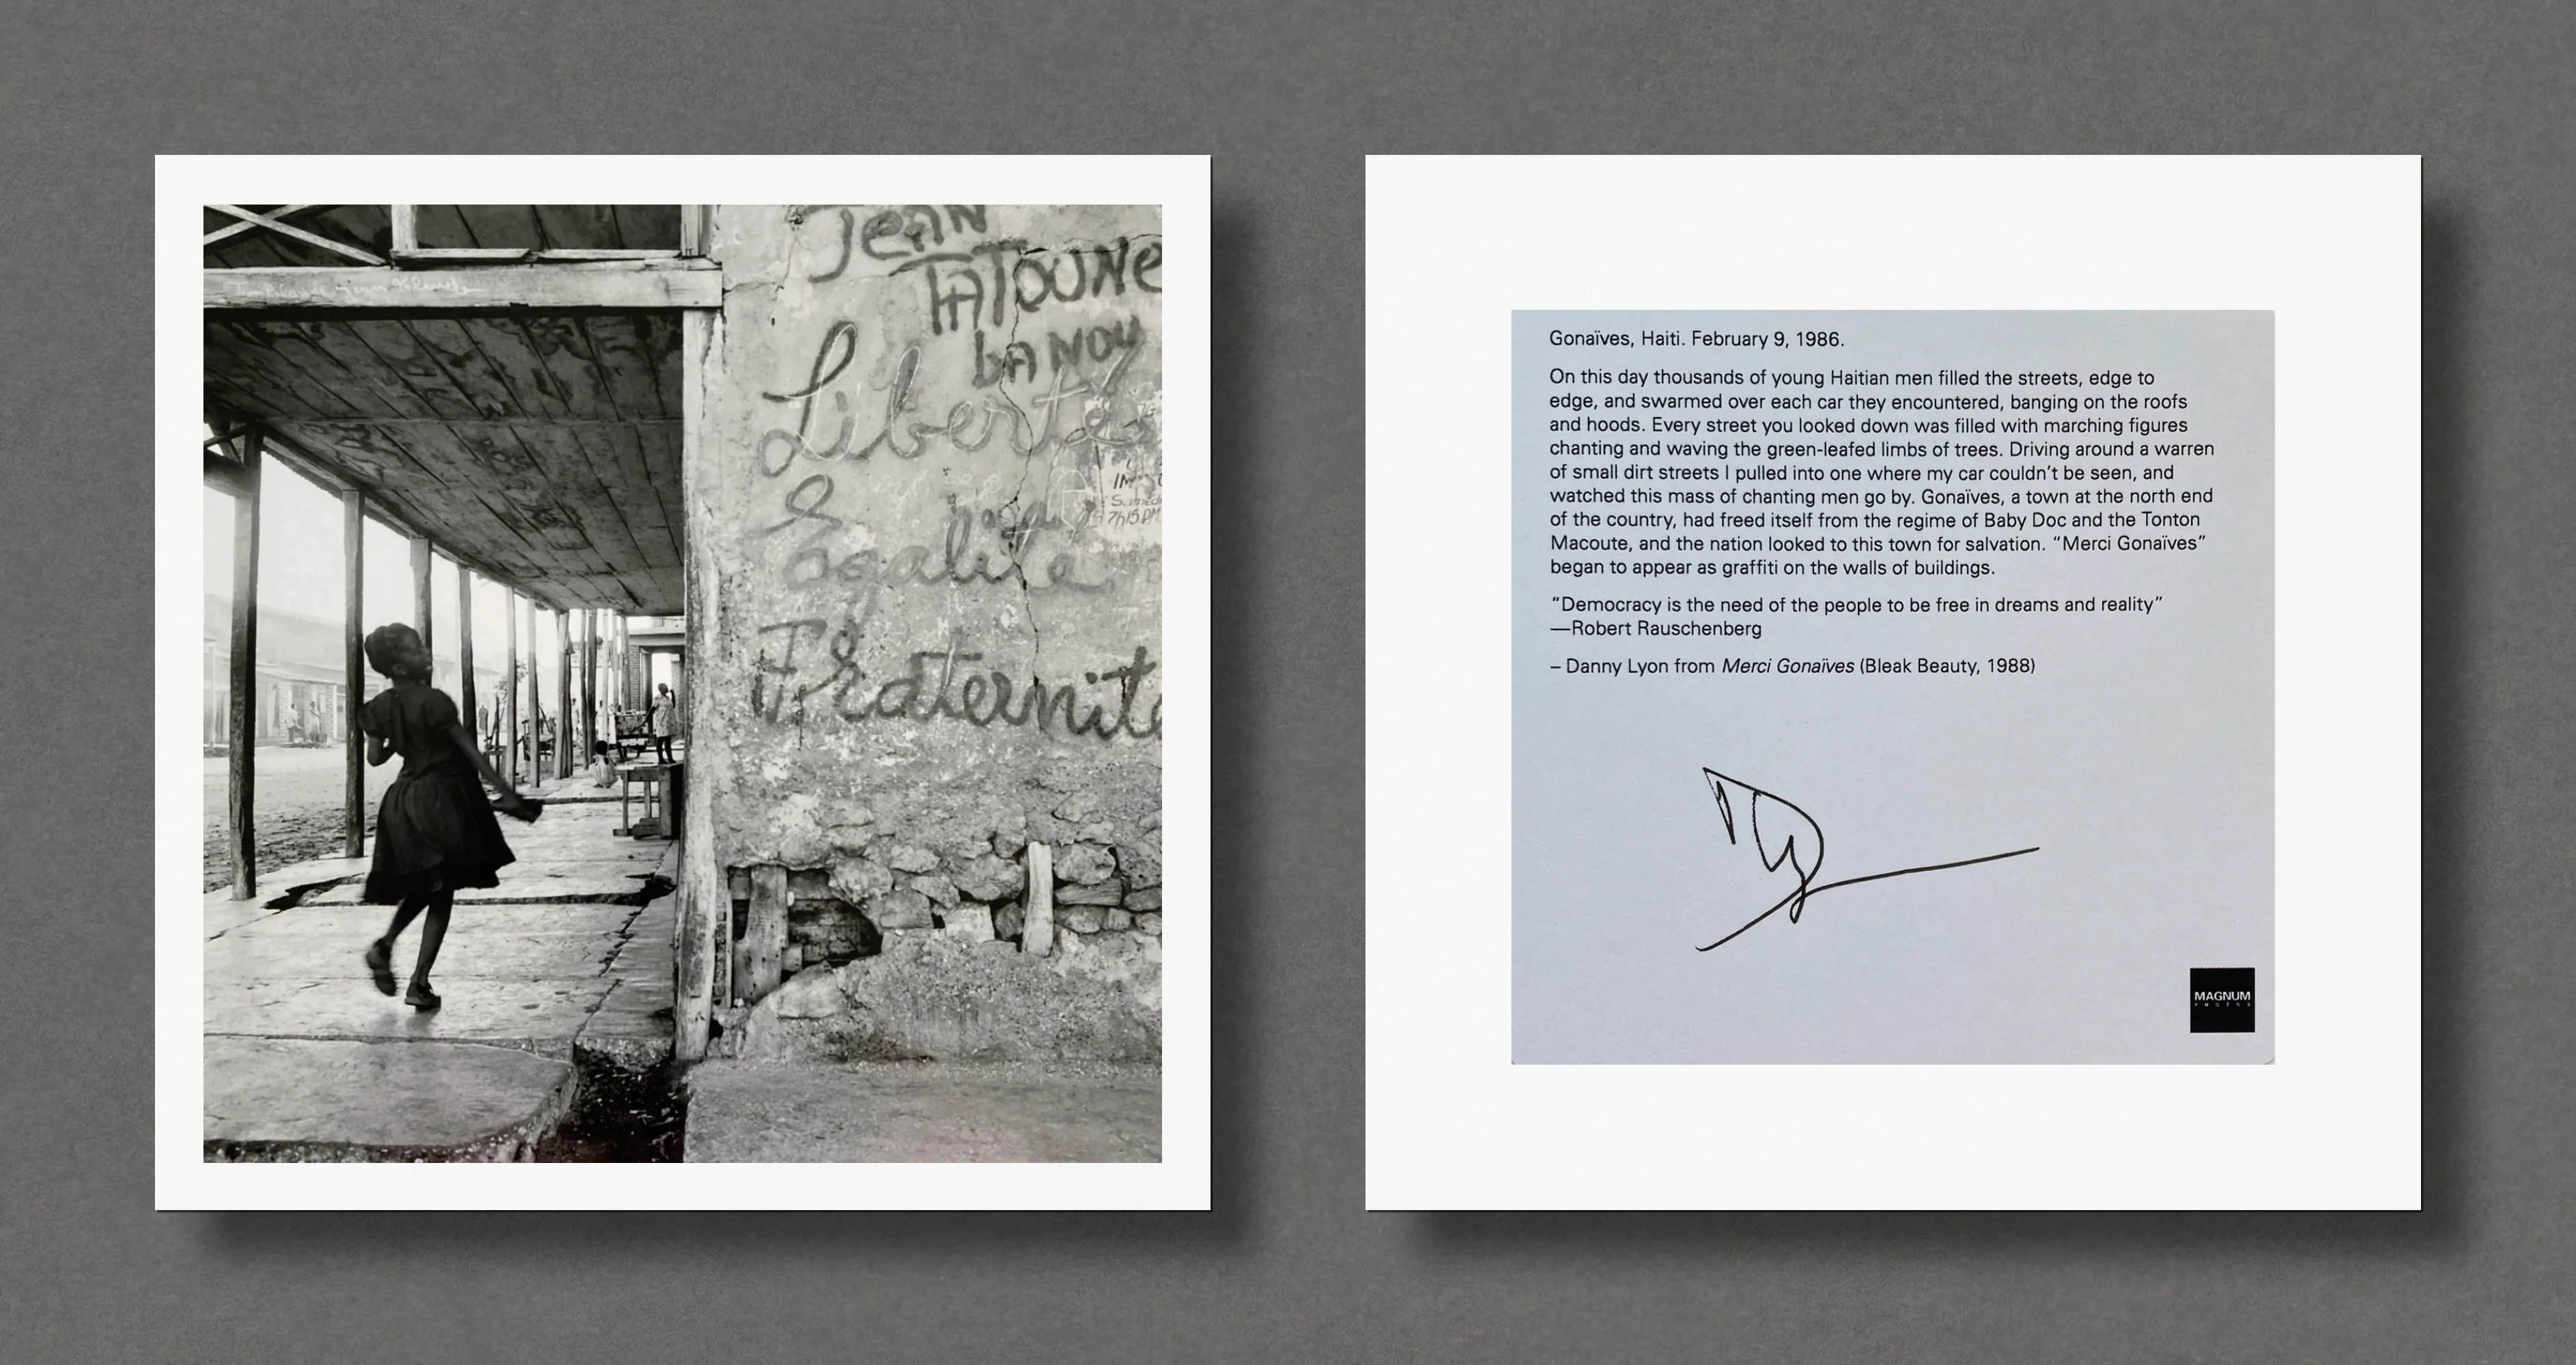 Jean
TATOUNE
Liberté
Egalité
Fraternité
7h15 PM
Gonaïves, Haiti. February 9, 1986.
On this day thousands of young Haitian men filled the streets, edge to
edge, and swarmed over each car they encountered, banging on the roofs
and hoods. Every street you looked down was filled with marching figures
chanting and waving the green-leafed limbs of trees. Driving around a warren
of small dirt streets I pulled into one where my car couldn’t be seen, and
watched this mass of chanting men go by. Gonaïves, a town at the north end
of the country, had freed itself from the regime of Baby Doc and the Tonton
Macoute, and the nation looked to this town for salvation. “Merci Gonaïves”
began to appear as graffiti on the walls of buildings.
“Democracy is the need of the people to be free in dreams and reality”
—Robert Rauschenberg
– Danny Lyon from Merci Gonaïves (Bleak Beauty, 1988)
MAGNUM
PHOTOS